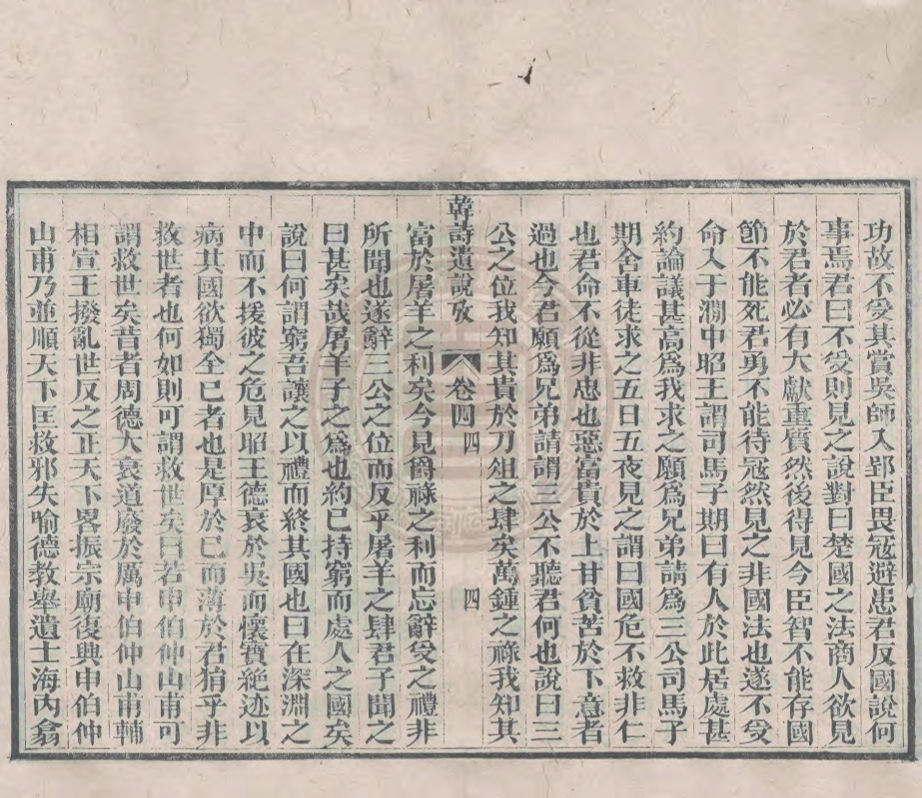 功故不受其賞吳師入郢臣畏寇避患君反國說何
事焉君曰不受則見之說對曰楚國之法商人欲見
於君者必有大獻重質然後得見今臣智不能存國
節不能死君勇不能待寇然見之非國法也遂不受
命入于澗中昭王謂司馬子期曰有人於此居處甚
約論議甚高爲我求之願爲兄弟請爲三公司馬子
期舍車徒求之五日五夜見之謂曰國危不救非仁
也君命不從非忠也惡富貴於上甘貧苦於下意者
過也今君願爲兄弟請謂三公不聽君何也說曰三
公之位我知其貴於刀俎之肆矣萬鍾之祿我知其
韓詩遺說攷 卷四四 四
富於屠羊之利矣今見爵祿之利而忘辭受之禮非
所聞也遂辭三公之位而反乎屠羊之肆君子聞之
曰甚矣哉屠羊子之爲也約已持窮而處人之國矣
說曰何謂窮吾讓之以禮而終其國也曰在深淵之
中而不援彼之危見昭王德衰於吳而懷寶絕迹以
病其國欲獨全已者也是厚於已而薄於君狷乎非
救世者也何如則可謂救世矣曰若申伯仲山甫可
謂救世矣昔者周德大衰道廢於厲申伯仲山甫輔
相宣王撥亂世反之正天下畧振宗廟復興申伯仲
山甫乃並順天下匡救邪失喻德教舉遺士海內翕